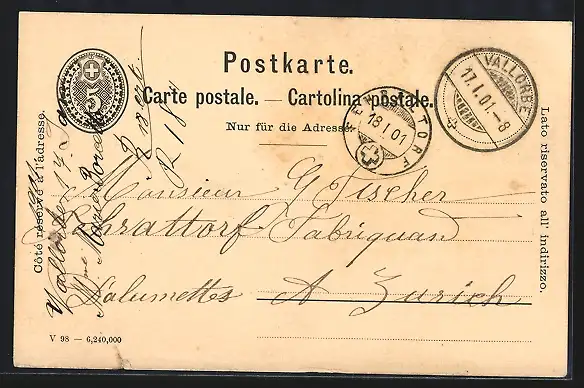 5
Postkarte.
Carte postale. — Cartolina postale.
Nur für die Adresse.
VALLORBE
17.I.01.-8
FEHRALTORF
18.I.01
Côté réservé à l'adresse.
Lato riservato all' indirizzo.
Vallorbe
Mme Marie
Monsieur G Fischer
Fabriquant
Alumettes A Zurich
V 98 — 6,240,000